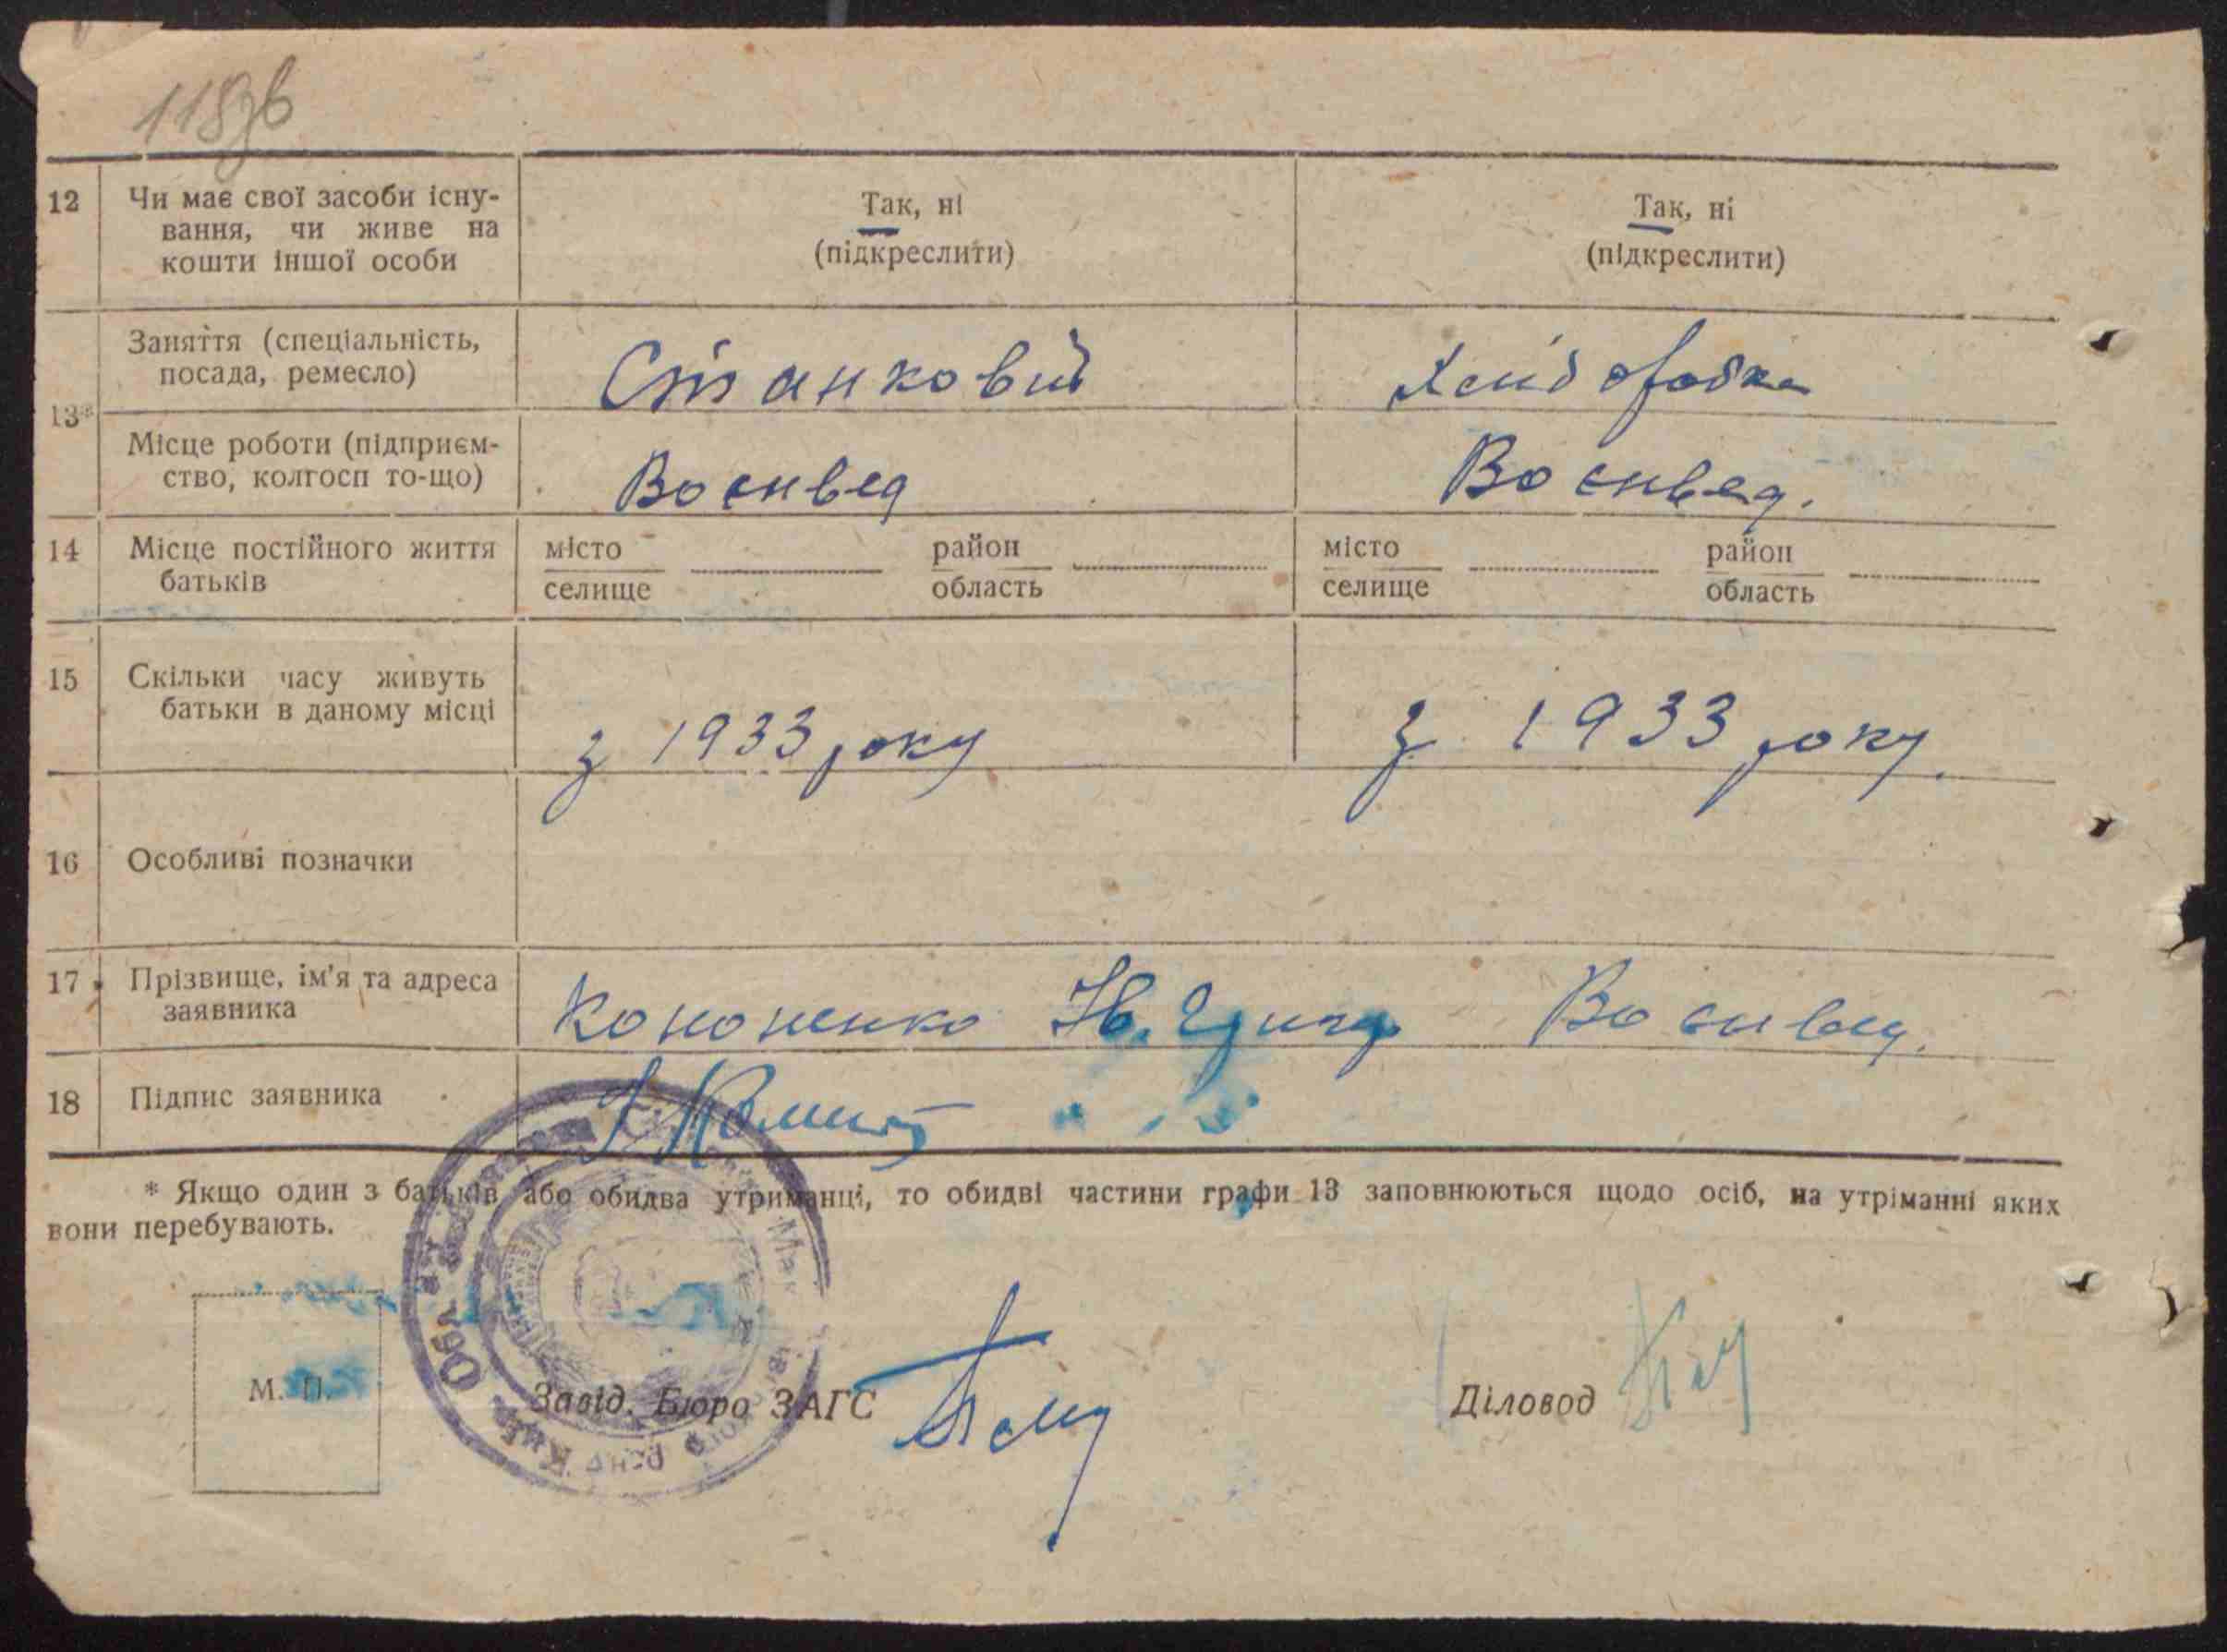 12 Чи має свої засоби існу-
вання, чи живе на
кошти іншої особи
Так, ні
(підкреслити)
Так, ні
(підкреслити)
13*
Заняття (спеціальність,
посада, ремесло)
Станковий
Місце роботи (підприєм-
ство, колгосп то-що)
Воєнвед
Воєнвед.
14 Місце постійного життя
батьків
місто район
селище область
місто район
селище область
15 Скільки часу живуть
батьки в даному місці
з 1933 року
з 1933 року.
16 Особливі позначки
17 Прізвище, ім'я та адреса
заявника
Кононенко Воєнвед.
18 Підпис заявника
* Якщо один з батьків або обидва утриманці, то обидві частини графи 13 заповнюються щодо осіб, на утріманні яких
вони перебувають.
М. П.
Завід. Бюро ЗАГС
Діловод